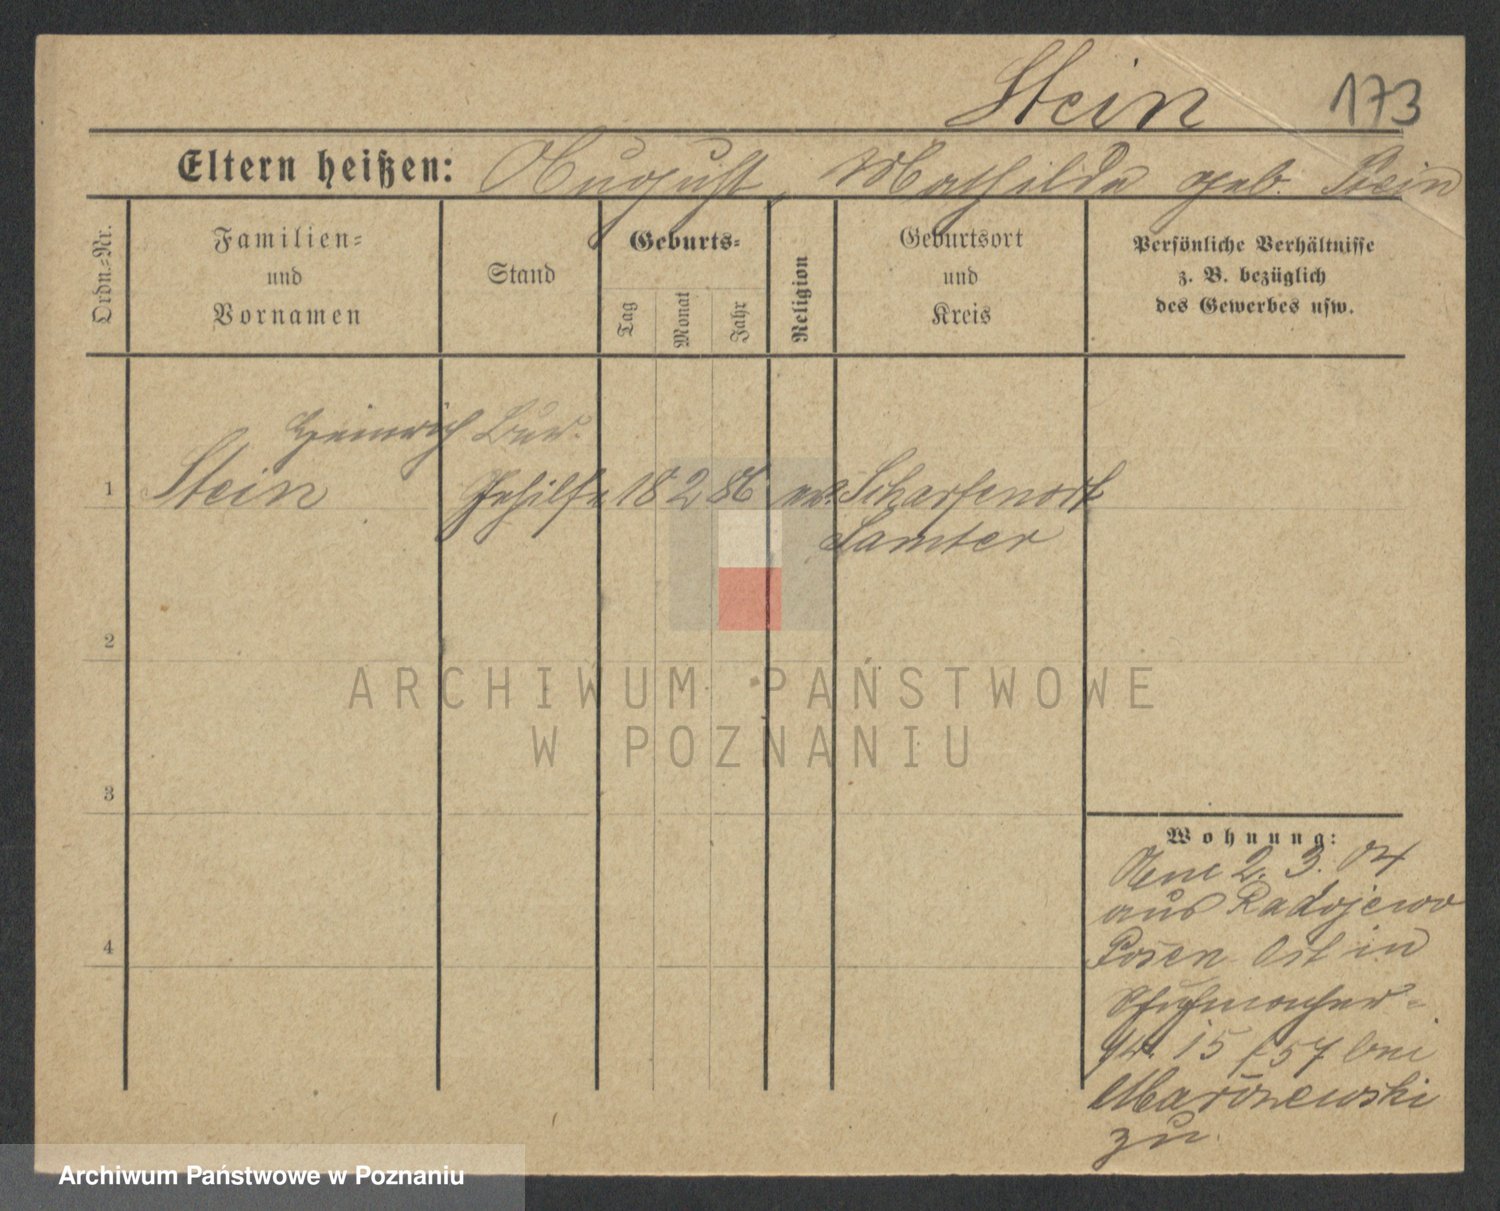 Stein 173
Eltern heißen: August, Mathilde geb. Stein
Ordn.-Nr.
Familien-
und
Vornamen
Stand
Geburts-
Tag
Monat
Jahr
Religion
Geburtsort
und
Kreis
Persönliche Verhältnisse
z. B. bezüglich
des Gewerbes usw.
Heinrich Bur.
1 Stein Gehilfe 18 2 86 ev. Scharfenort
Samter
2
3
4
ARCHIWUM PAŃSTWOWE
W POZNANIU
Wohnung:
2. 3. 04
aus Radojewo
Posen Ost in
Schuhmacher-
str. 15 bei
zu
Archiwum Państwowe w Poznaniu